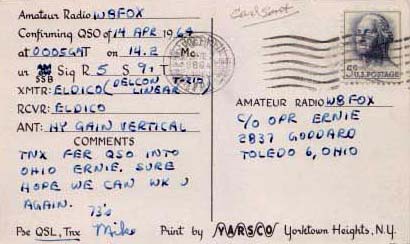 Amateur Radio W8FOX
Card Sent
Confirming QSO of 14 APR 1964
at 0005GMT on 14.2 Mc
ur SSB Sig R 5 S 9+ T
XMTR: ELDICO (DELCON LINEAR)
RCVR: ELDICO
ANT: HY GAIN VERTICAL
COMMENTS
TNX FER QSO INTO
OHIO ERNIE. SURE
HOPE WE CAN WK U
AGAIN.
73's
Pse QSL, Tnx Mike
Print by YARSCO Yorktown Heights, N.Y.
U.S. POSTAGE
AMATEUR RADIO W8FOX
C/O OPR ERNIE
2837 GODDARD
TOLEDO 6, OHIO